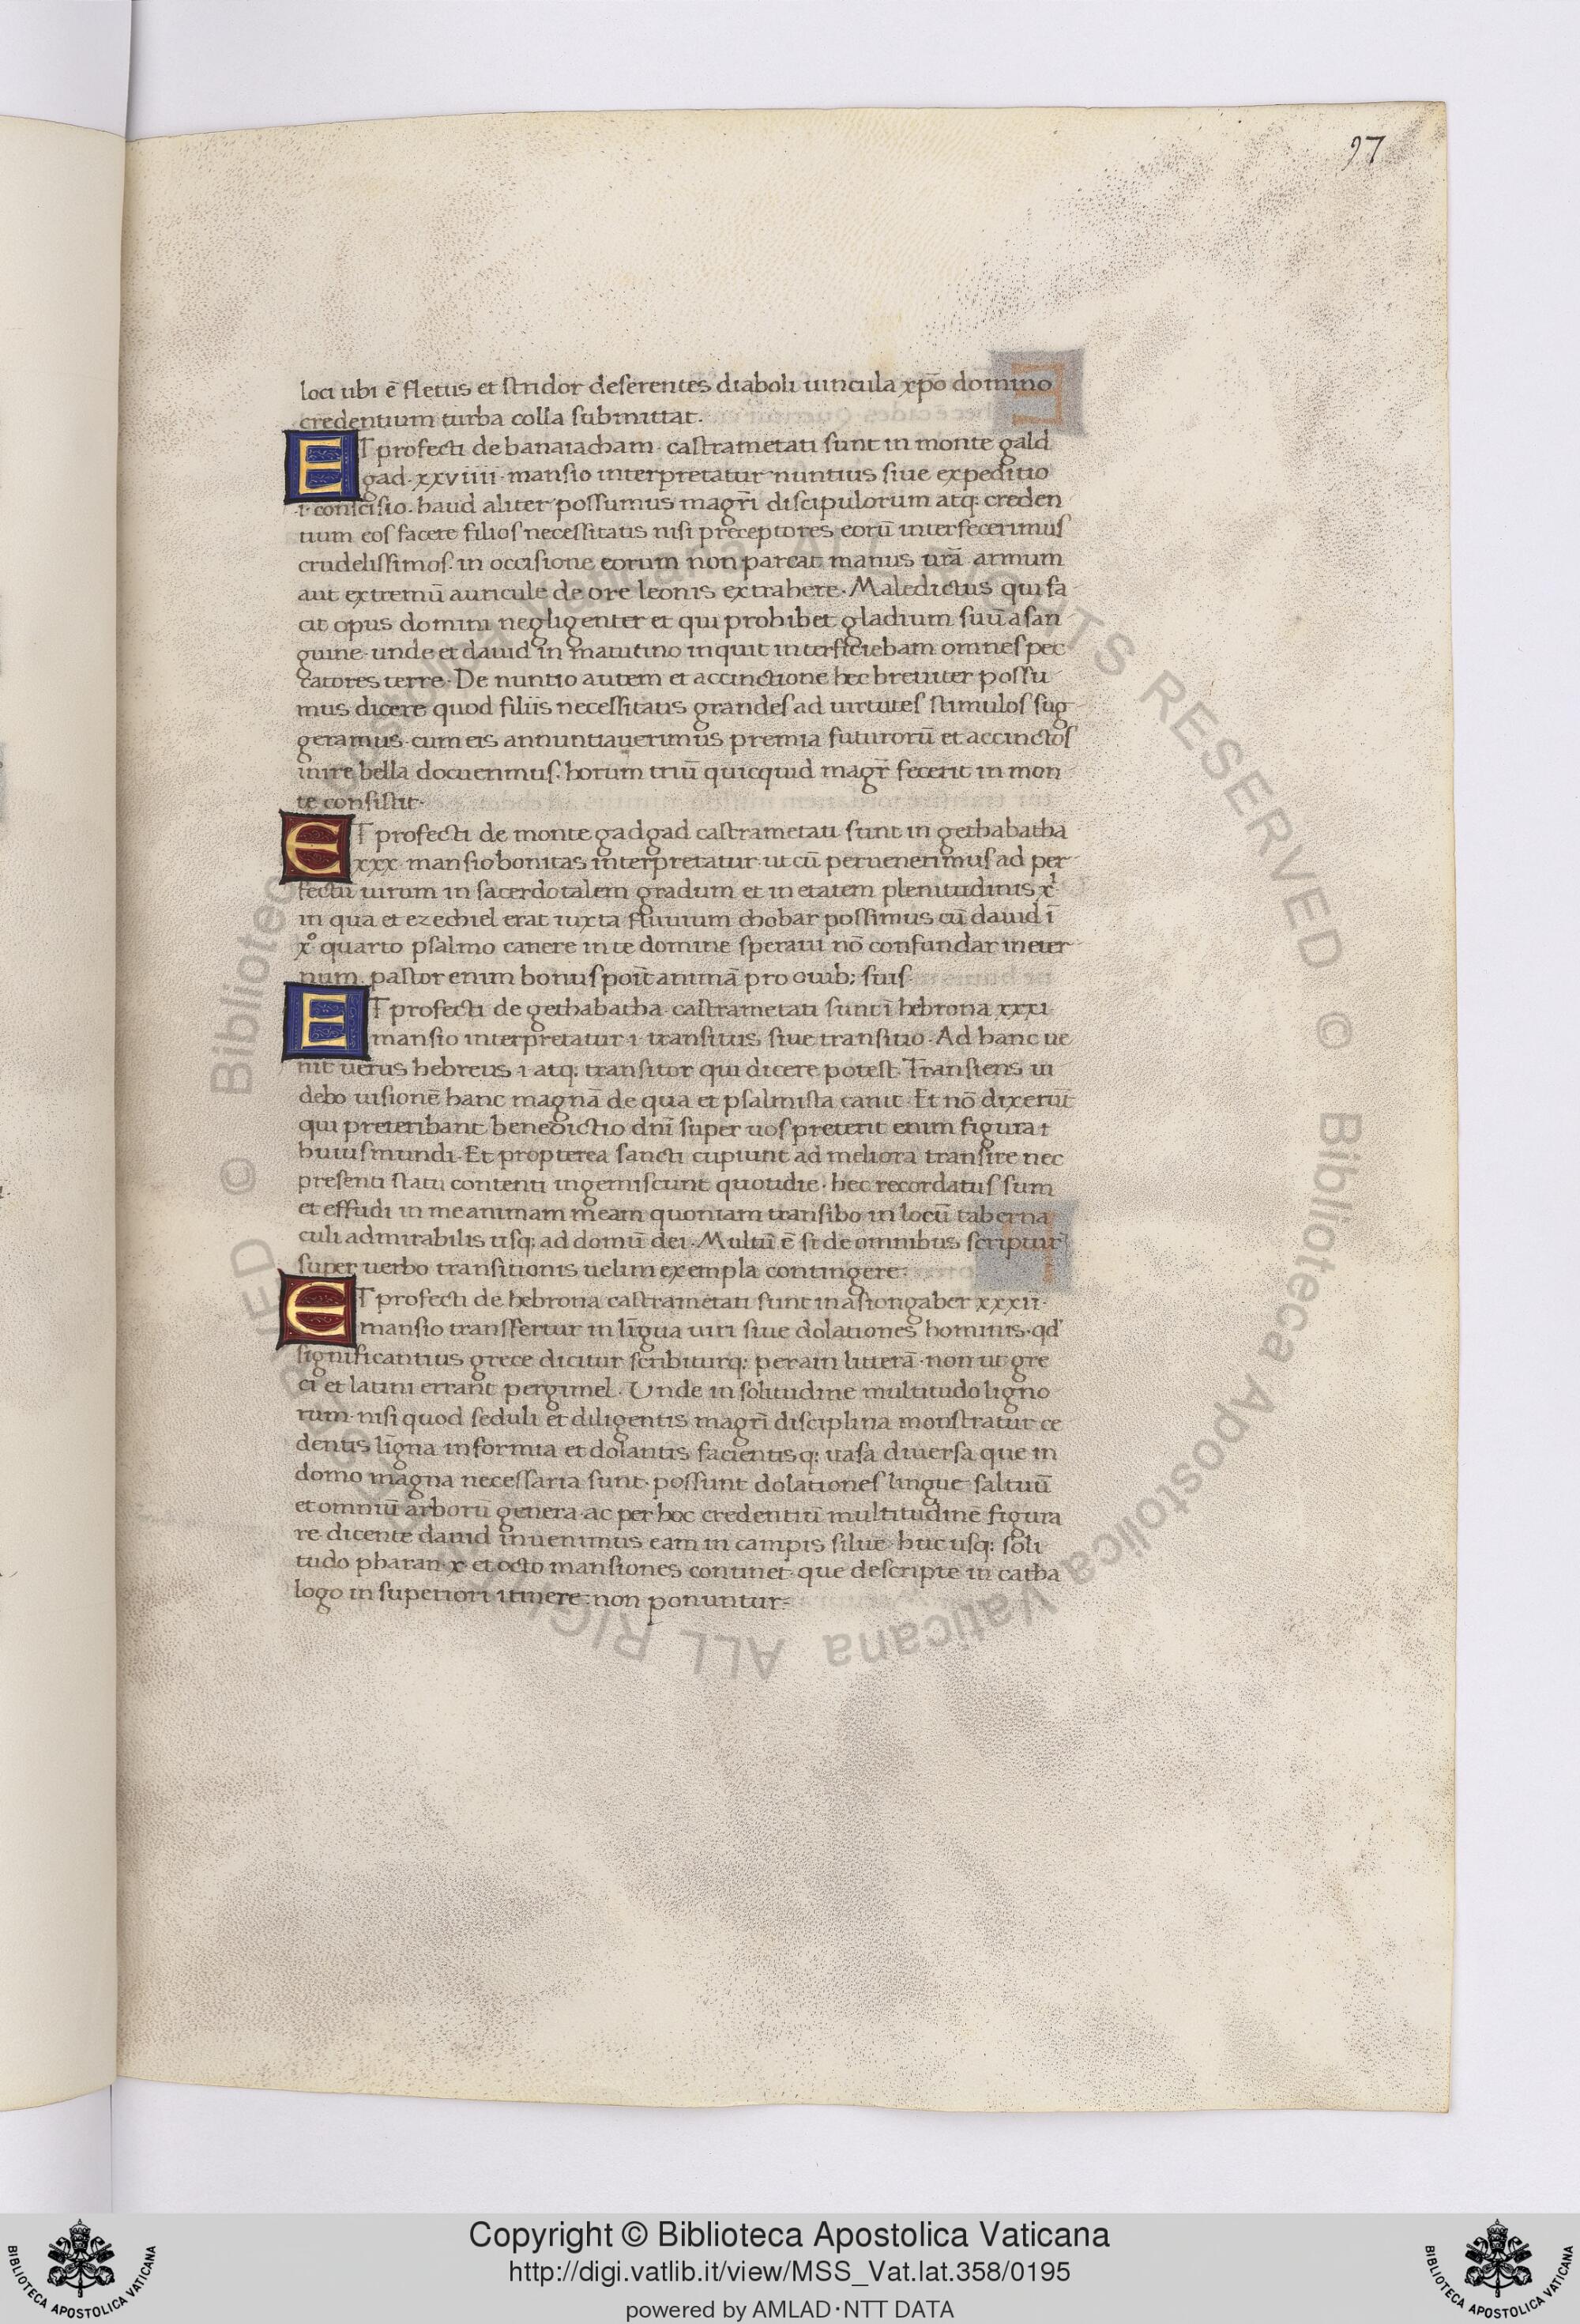 97
loci ubi ē fletus et stridor deserentes diaboli uincula xp̄o domino
credentium turba colla submittat.
ET profecti de banaiacham· castrametati sunt in monte gald
gad· xxviiii· mansio interpretatur nuntius siue expeditio
·i· concisio. haud aliter possumus magr̄i discipulorum atq: creden
tium eos facere filios necessitatis nisi preceptores eorū interfecerimus
crudelissimos. in occisione eorum non parcat manus urā armum
aut extremū auricule de ore leonis extrahere· Maledictus qui fa
cit opus domini negligenter et qui prohibet gladium suū a san
guine· unde et dauid in matutino inquit interficiebam omnes pec
catores terre· De nuntio autem et accinctione hec breuiter possu
mus dicere quod filiis necessitatis grandes ad uirtutes stimulos sug
geramus· cum eis annuntiauerimus premia futurorū et accinctos
inire bella docuerimus. horum triū quicquid magr̄ fecerit in mon
te consistit·
ET profecti de monte gadgad castrametati sunt in gethabatha
xxx· mansio bonitas interpretatur· ut cū peruenerimus ad per
fectū uirum in sacerdotalem gradum et in etatem plenitudinis x̄ı
in qua et ezechiel erat iuxta fluuium chobar possimus cū dauid ī
x° quarto psalmo canere in te domine speraui nō confundar in eter
num. pastor enim bonus poīt animā pro ouib; suis
ET profecti de gethabatha castrametati sunt ī hebrona xxxi
mansio interpretatur ·i· transitus siue transitio· Ad hanc ue
nit uerus hebreus ·i· atq: transitor qui dicere potest. Transiens ui
debo uisionē hanc magnā de qua et psalmista canit· Et nō dixerūt
qui preteribant benedictio dn̄i super uos preterit enim figura ·i·
huius mundi· Et propterea sancti cupiunt ad meliora transire nec
presenti statu contenti ingemiscunt quotidie· hec recordatus sum
et effudi in me animam meam quoniam transibo in locū taberna
culi admirabilis usq: ad domū dei· Multū ē si de omnibus scriptur̄
super uerbo transitionis uelim exempla contingere·
ET profecti de hebrona castrametati sunt in asiongaber xxxii·
mansio transfertur in līgua uiri siue dolationes hominis· qd'
significantius grece dicitur scribiturq: per ain litterā· non ut gre
ci et latini errant per gimel· Unde in solitudine multitudo ligno
rum· nisi quod seduli et diligentis magr̄i disciplina monstratur ce
dentis līgna informia et dolantis facientisq: uasa diuersa que in
domo magna necessaria sunt· possunt dolationes lingue saltuū
et omniū arborū genera· ac per hoc credentiū multitudinē figura
re· dicente dauid inuenimus eam in campis silue· huc usq: soli
tudo pharan· x· et octo mansiones continet· que descripte in catha
logo in superiori itinere: non ponuntur·
Copyright © Biblioteca Apostolica Vaticana
http://digi.vatlib.it/view/MSS_Vat.lat.358/0195
powered by AMLAD·NTT DATA
BIBLIOTECA APOSTOLICA VATICANA
BIBLIOTECA APOSTOLICA VATICANA
© Biblioteca Apostolica Vaticana ALL RIGHTS RESERVED
© Biblioteca Apostolica Vaticana ALL RIGHTS RESERVED